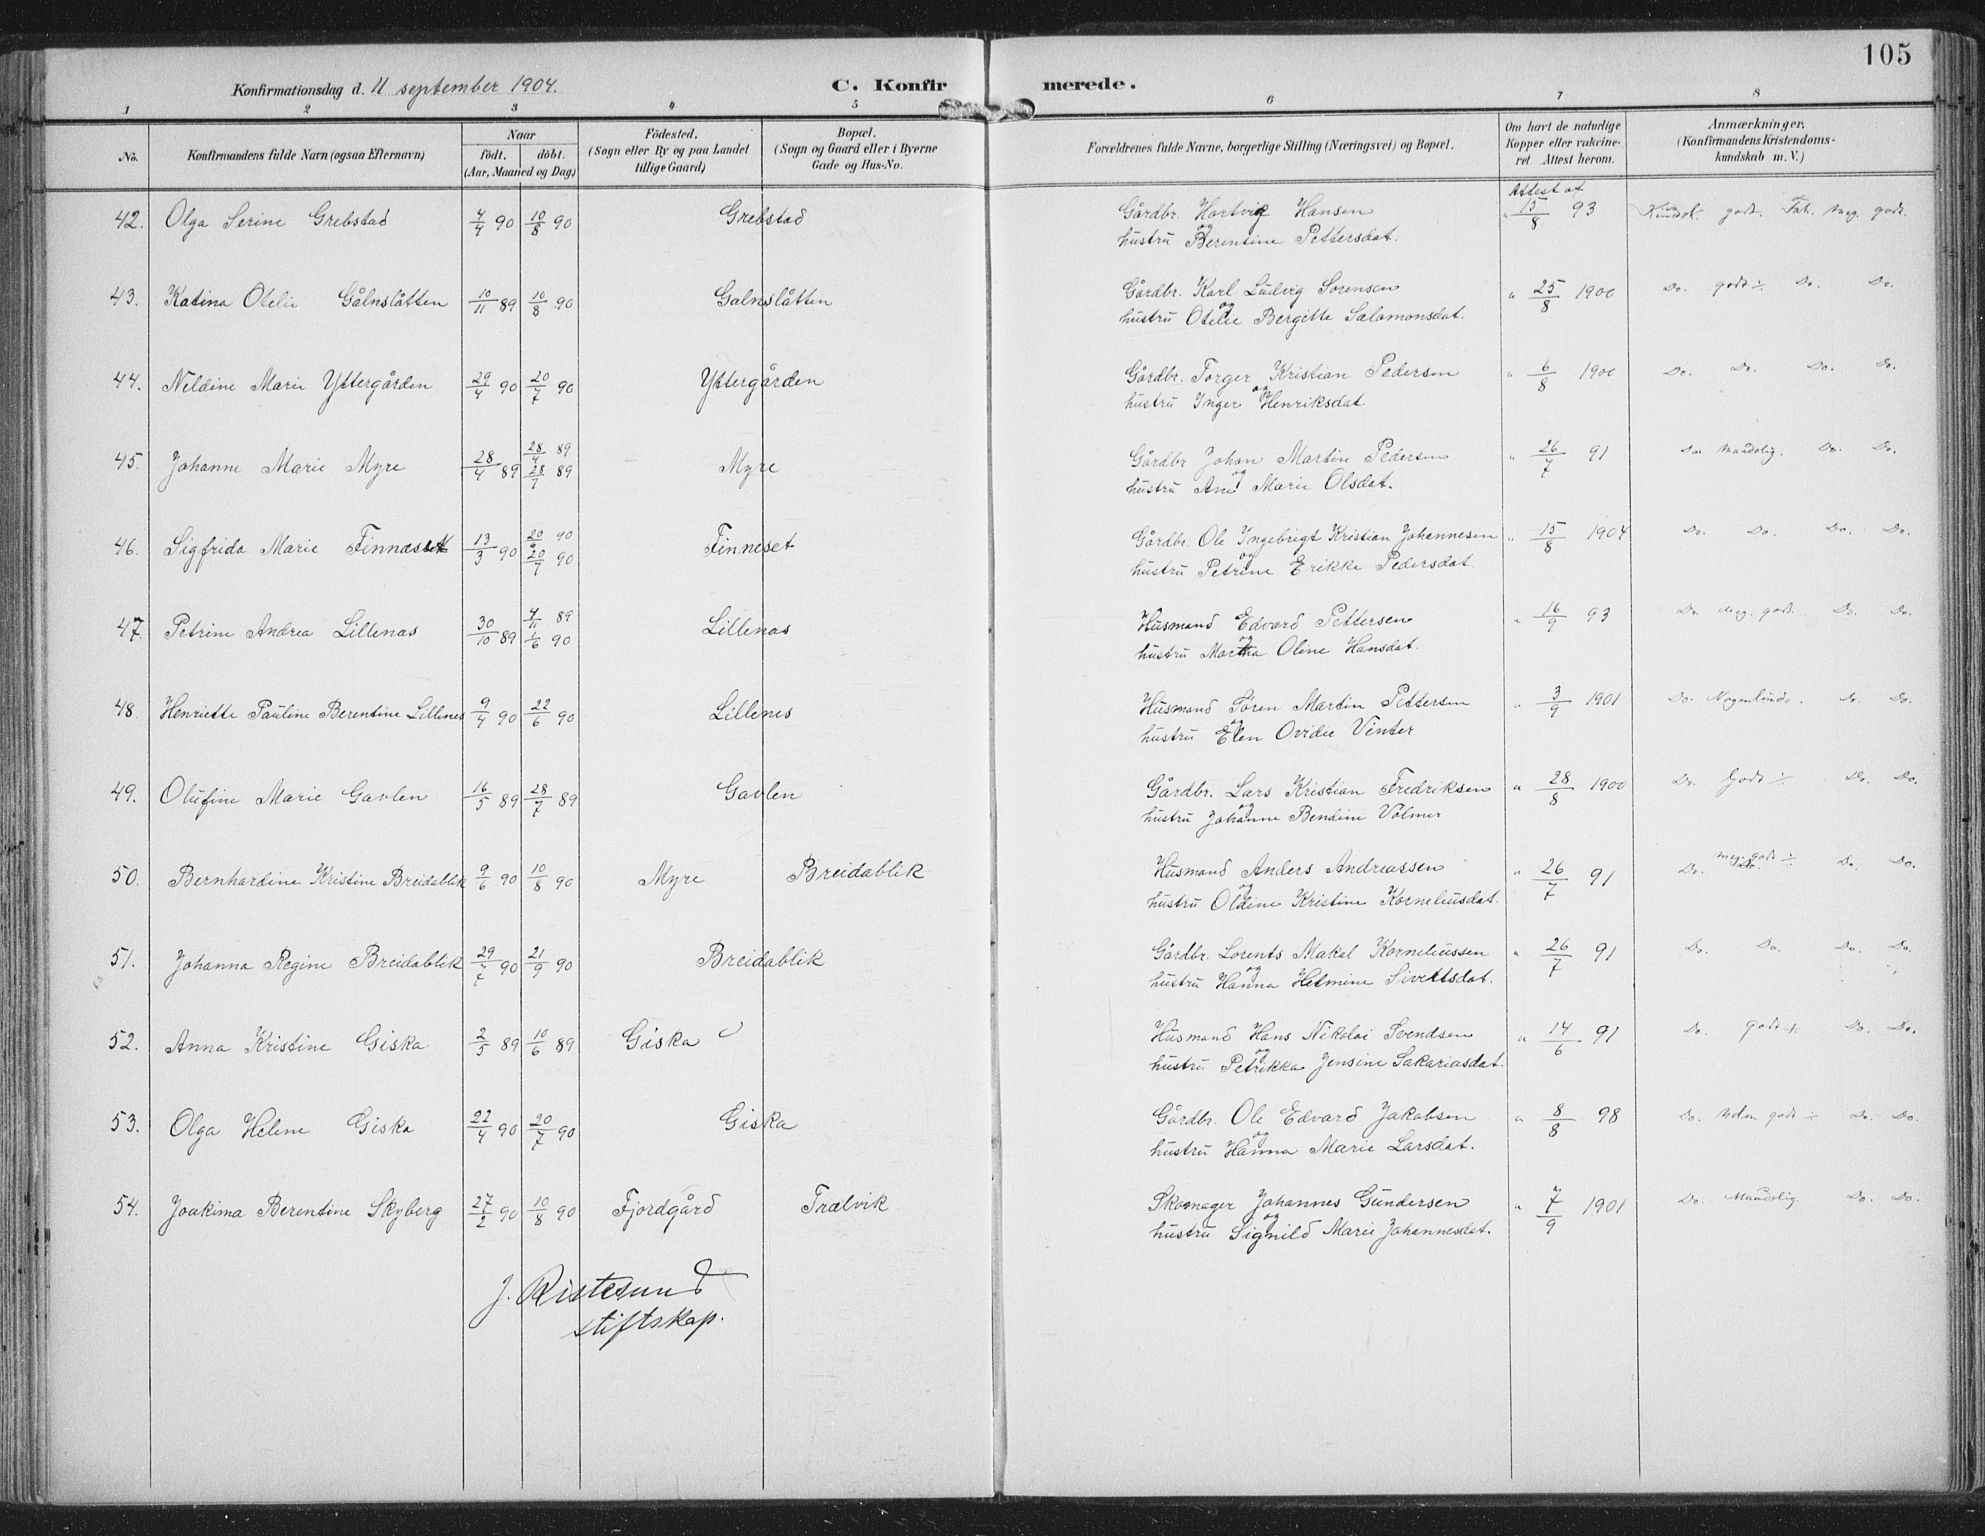 105
Konfirmationsdag d. 11 september 1904. C. Konfirmerede.
1 2 3 4 5 6 7 8
No. Konfirmandens fulde Navn (ogsaa Efternavn) Naar födt. döbt. (Aar, Maaned og Dag) Födested. (Sogn eller By og paa Landet tillige Gaard) Bopæl. (Sogn og Gaard eller i Byerne Gade og Hus-No. Forældrenes fulde Navne, borgerlige Stilling (Næringsvei) og Bopæl. Om havt de naturlige Kopper eller vakcineret Attest herom. Anmærkninger. (Konfirmandens Kristendomskundskab m. V.)
Attest af
42. Olga Serine Grebstad 4/4 90 10/8 90 Grebstad Gårdbr. Hartvig Hansen " 15/8 93 Kundsk. godt. Fah. meg. godt.
og hustru Berentine Pettersdat.
43. Katina Otelie Gålnslåtten 10/11 89 10/8 90 Galnslåtten Gårdbr. Karl Ludvig Sorensen " 25/8 1900 Do. godt ÷ Do. Do.
og hustru Otelie Bergitte Salamonsdat.
44. Neldine Marie Yttergården 29/4 90 20/7 90 Yttergården Gårdbr. Torger Kristian Pedersen " 6/8 1900 Do. Do. Do. Do.
og hustru Inger Henriksdat.
45. Johanne Marie Myre 28/4 89 28/4 89 28/7 89 Myre Gårdbr Johan Martin Pedersen " 26/7 91 Do. Maadelig. Do. Do.
og hustru Ane Marie Olsdat.
46. Sigfrida Marie Finnæset 13/3 90 20 90 20/7 90 Finneset Gårdbr. Ole Ingebrigt Kristian Johannesen " 15/8 1904 Do. Do. Do. Do.
og hustru Petrine Erikke Pedersdat.
47. Petrine Andrea Lillenas 30/10 89 4/11 89 1/6 90 Lillenas Husmand Edvard Pettersen " 16/9 93 Do. meg. godt. Do. Do.
og hustru Martha Oline Hansdat.
48. Henriette Pauline Berentine Lillenes 9/4 90 22/6 90 Lillenes Husmand Søren Martin Pettersen " 3/9 1901 Do. Nogenlunde. Do. Do.
og hustru Elen Ovidie Vinter
49. Olufine Marie Gavlen 16/5 89 28/7 89 Gavlen Gårdbr. Lars Kristian Fredriksen " 28/8 1900 Do. Godt ÷ Do. Do.
og hustru Johanne Bendine Volmer
50. Bernhardine Kristine Breidablik 9/6 90 10/8 90 Myre Breidablik Husmand Anders Andreassen " 26/7 91 Do. meg. godt ÷ Do. Do.
og hustru Oldine Kristine Korneliusdat.
51. Johanna Regine Breidablik 29/7 90 21/9 90 Breidablik Gårdbr. Lorents Makal Korneliussen " 26/7 91 Do. Do. Do. Do.
og hustru Hanna Helmine Sivertsdat.
52. Anna Kristine Giska 2/5 89 10/6 89 Giska Husmand Hans Nikolai Svendsen " 14/6 91 Do. godt + Do. Do.
og hustru Petrikka Jensine Sakariasdat.
53. Olga Helene Giska 22/4 90 20/7 90 Giska Gårdbr. Ole Edvard Jakobsen " 8/8 98 Do. godt ÷ Do. Do.
og hustru Hanna Marie Larsdat.
54. Joakima Berentine Skyberg 27/2 90 10/8 90 Fjordgård Trælvik Skomager Johannes Gundersen " 7/9 1901 Do. Maadelig Do. Do.
og hustru Signild Marie Johannesdat.
J. Ristesund
stiftskap.